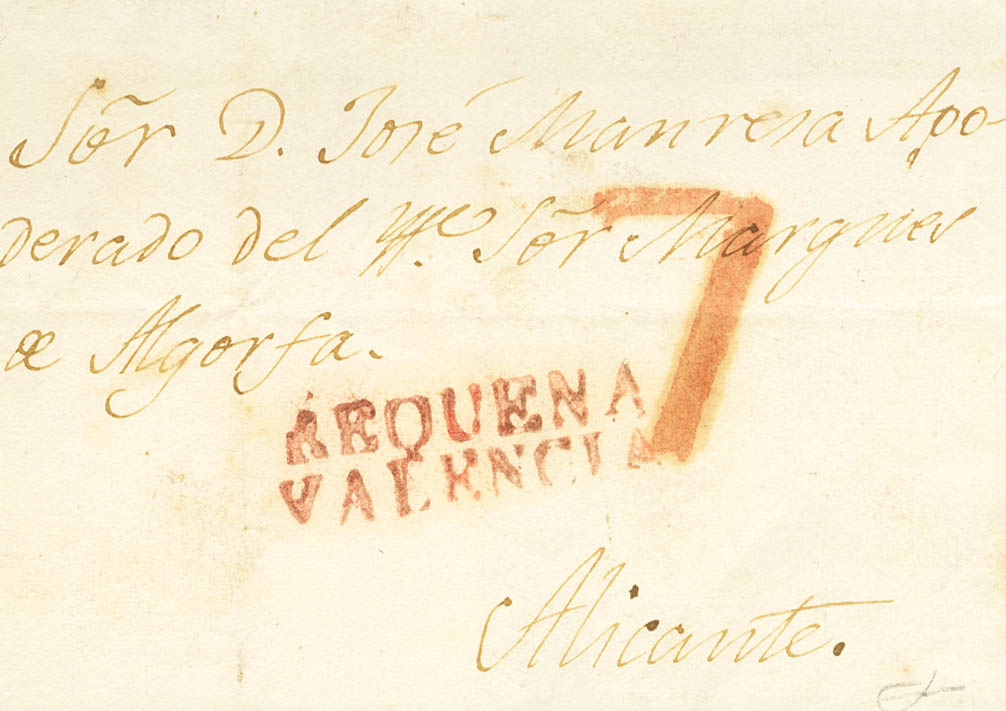 Sõr D. José Manresa Apo-
derado del Yll.e Sõr Marques
de Algorfa.
7
REQUENA
VALENCIA
Alicante.